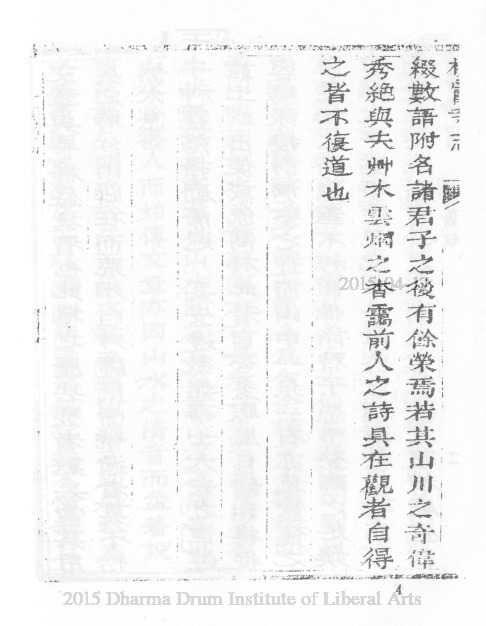 綴數語附名諸君子之後有餘榮焉若其山川之奇偉
秀絕與夫艸木雲烟之杳靄前人之詩具在觀者自得
之皆不復道也
2015-04-
4
2015 Dharma Drum Institute of Liberal Arts